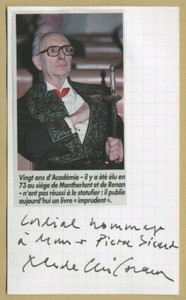 Vingt ans d'Académie – il y a été élu en
73 au siège de Montherlant et de Renan
– n'ont pas réussi à le statufier : il publie
aujourd'hui un livre « imprudent ».
Cordial hommage
à Pierre Sicard